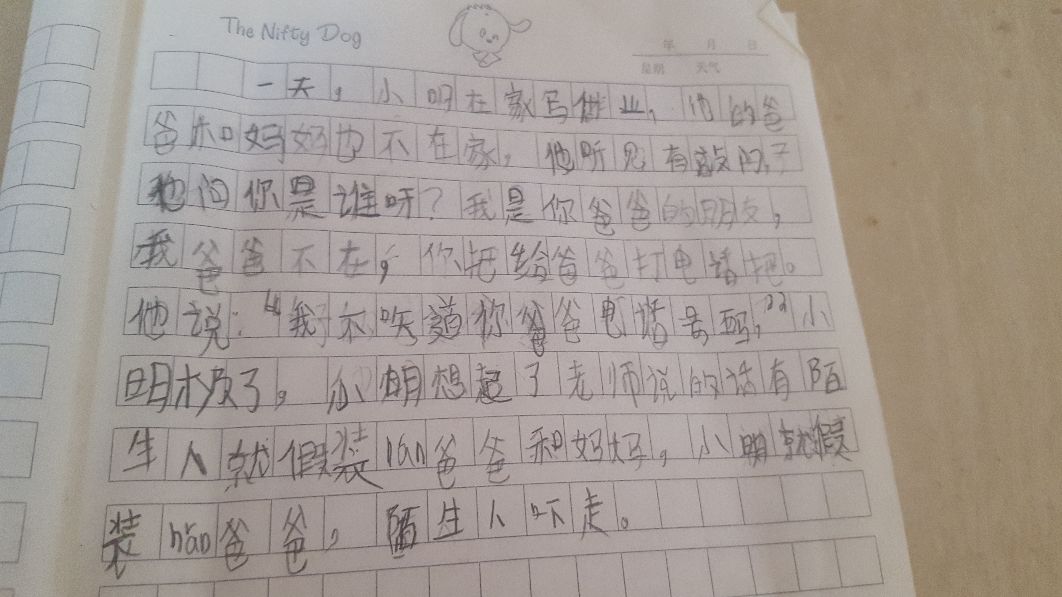 The Nifty Dog
年 月 日
星期 天气
一天，小明在家写作业，他的爸
爸和妈妈也不在家，他听见有敲门，
他问你是谁呀？我是你爸爸的朋友，
我爸爸不在，你把给爸爸打电话把。
他说：“我不知道你爸爸电话号码，”小
明木及了，小明想起了老师说的话有陌
生人就假装 hǎn 爸爸和妈妈，小明就假
装 hǎn 爸爸，陌生人吓走。